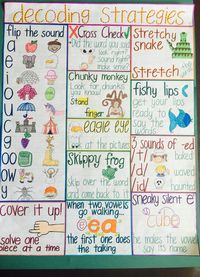 decoding Strategies
flip the sound
a
e
i
o
u
c
g
oo
ow
y
Cross Check
Did the word you said
look right?
sound right?
make sense?
Chunky monkey
Look for chunks
you know!
Stand
finger
eagle eye
look at the pictures
Skippy frog
Skip over the word
and come back to it
Stretchy
snake
Stretch it
fishy lips
get your lips
ready to
say the
3 sounds of -ed
/t/ baked
/d/ waved
/id/ hunted
cover it up!
solve one
piece at a time
when two vowels
go walking...
ea
the first one does
the talking
sneaky silent e
cube
he makes the vowel
say its name